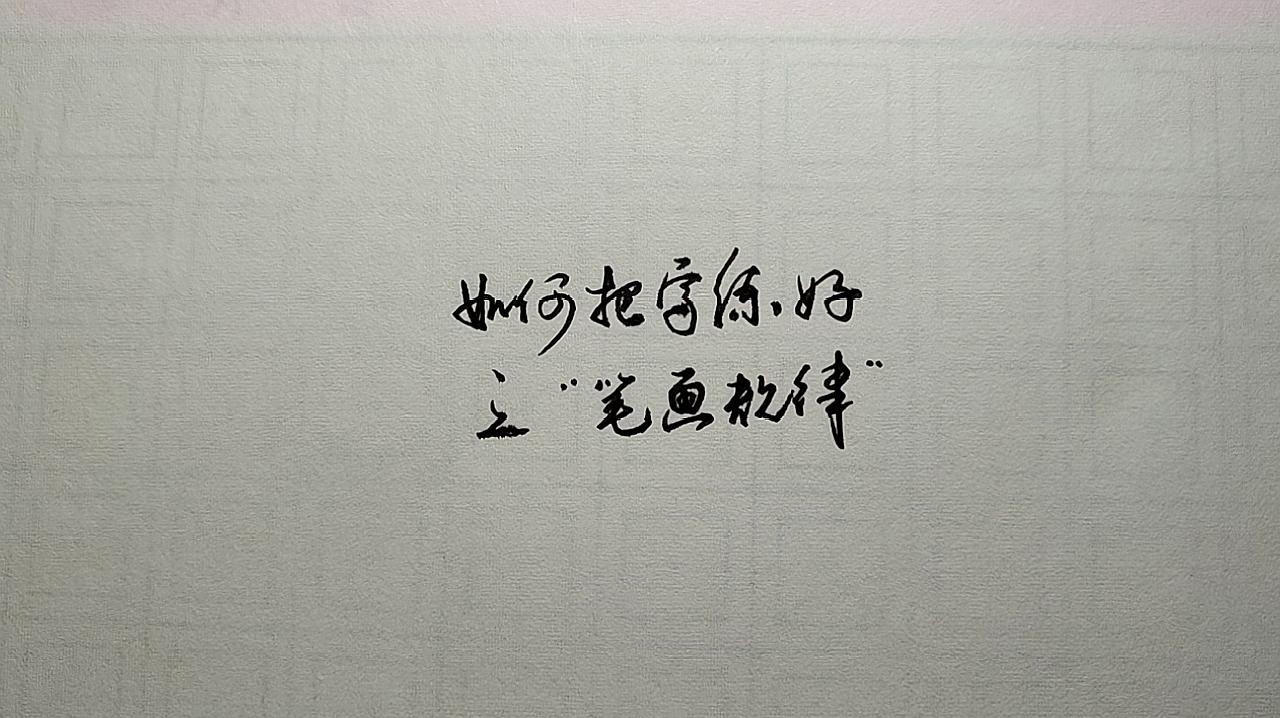 如何把字练好
之“笔画规律”